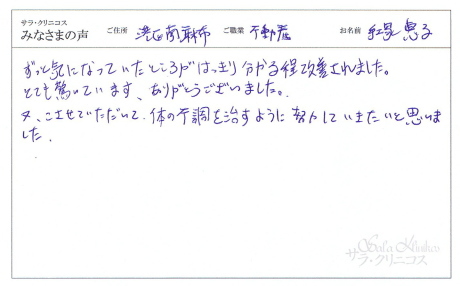 サラ・クリニコス
みなさまの声 ご住所 港区南麻布 ご職業 不動産 お名前 恵子
ずっと気になっていたところがはっきり分かる程改善されました。
とても驚いています、ありがとうございました。
又、こさせていただいて、体の不調を治すように努力していきたいと思いま
した.
Sala Klinikos
サラ・クリニコス